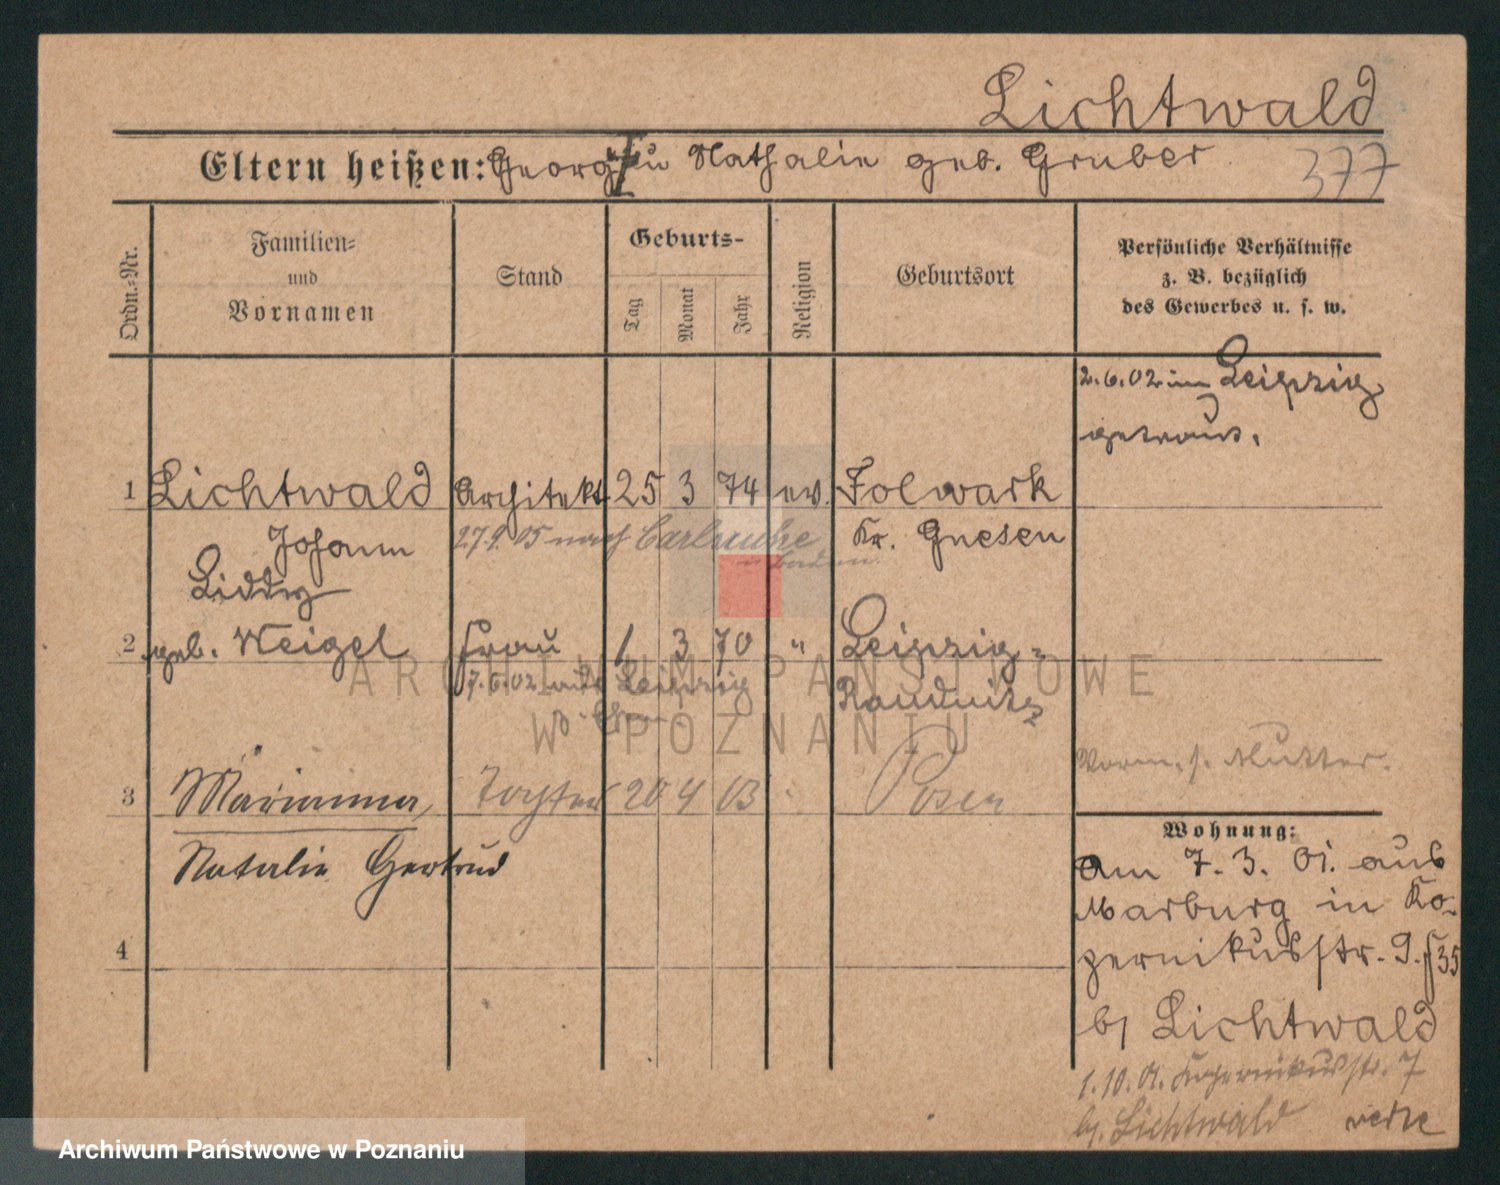 Lichtwald
Eltern heißen: Georg † u Nathalie geb. Gruber
377
Ordn.-Nr.
Familien- und Vornamen
Stand
Geburts-
Tag
Monat
Jahr
Religion
Geburtsort
Persönliche Verhältnisse
z. B. bezüglich
des Gewerbes u. s. w.
2.6.02 in Leipzig
getraut.
1 Lichtwald Architekt 25 3 74 ev. Folwark
Johann 27.9.05 nach Carlsruhe Kr. Gnesen
in Baden
Liddy
2 geb. Weigel Frau 1 3 70 " Leipzig-
7.6.02 aus Leipzig Raudnitz
z. Ehem.
Vorm. s. Mutter.
3 Marianna, Tochter 20 4 03 Posen
Natalie Gertrud
4
Wohnung:
Am 7. 3. 01. aus
Marburg in Ko-
pernikusstr. 9.
b/ Lichtwald
1.10.01. Kopernikusstr. 7
b/ Lichtwald
ARCHIWUM PAŃSTWOWE
W POZNANIU
Archiwum Państwowe w Poznaniu